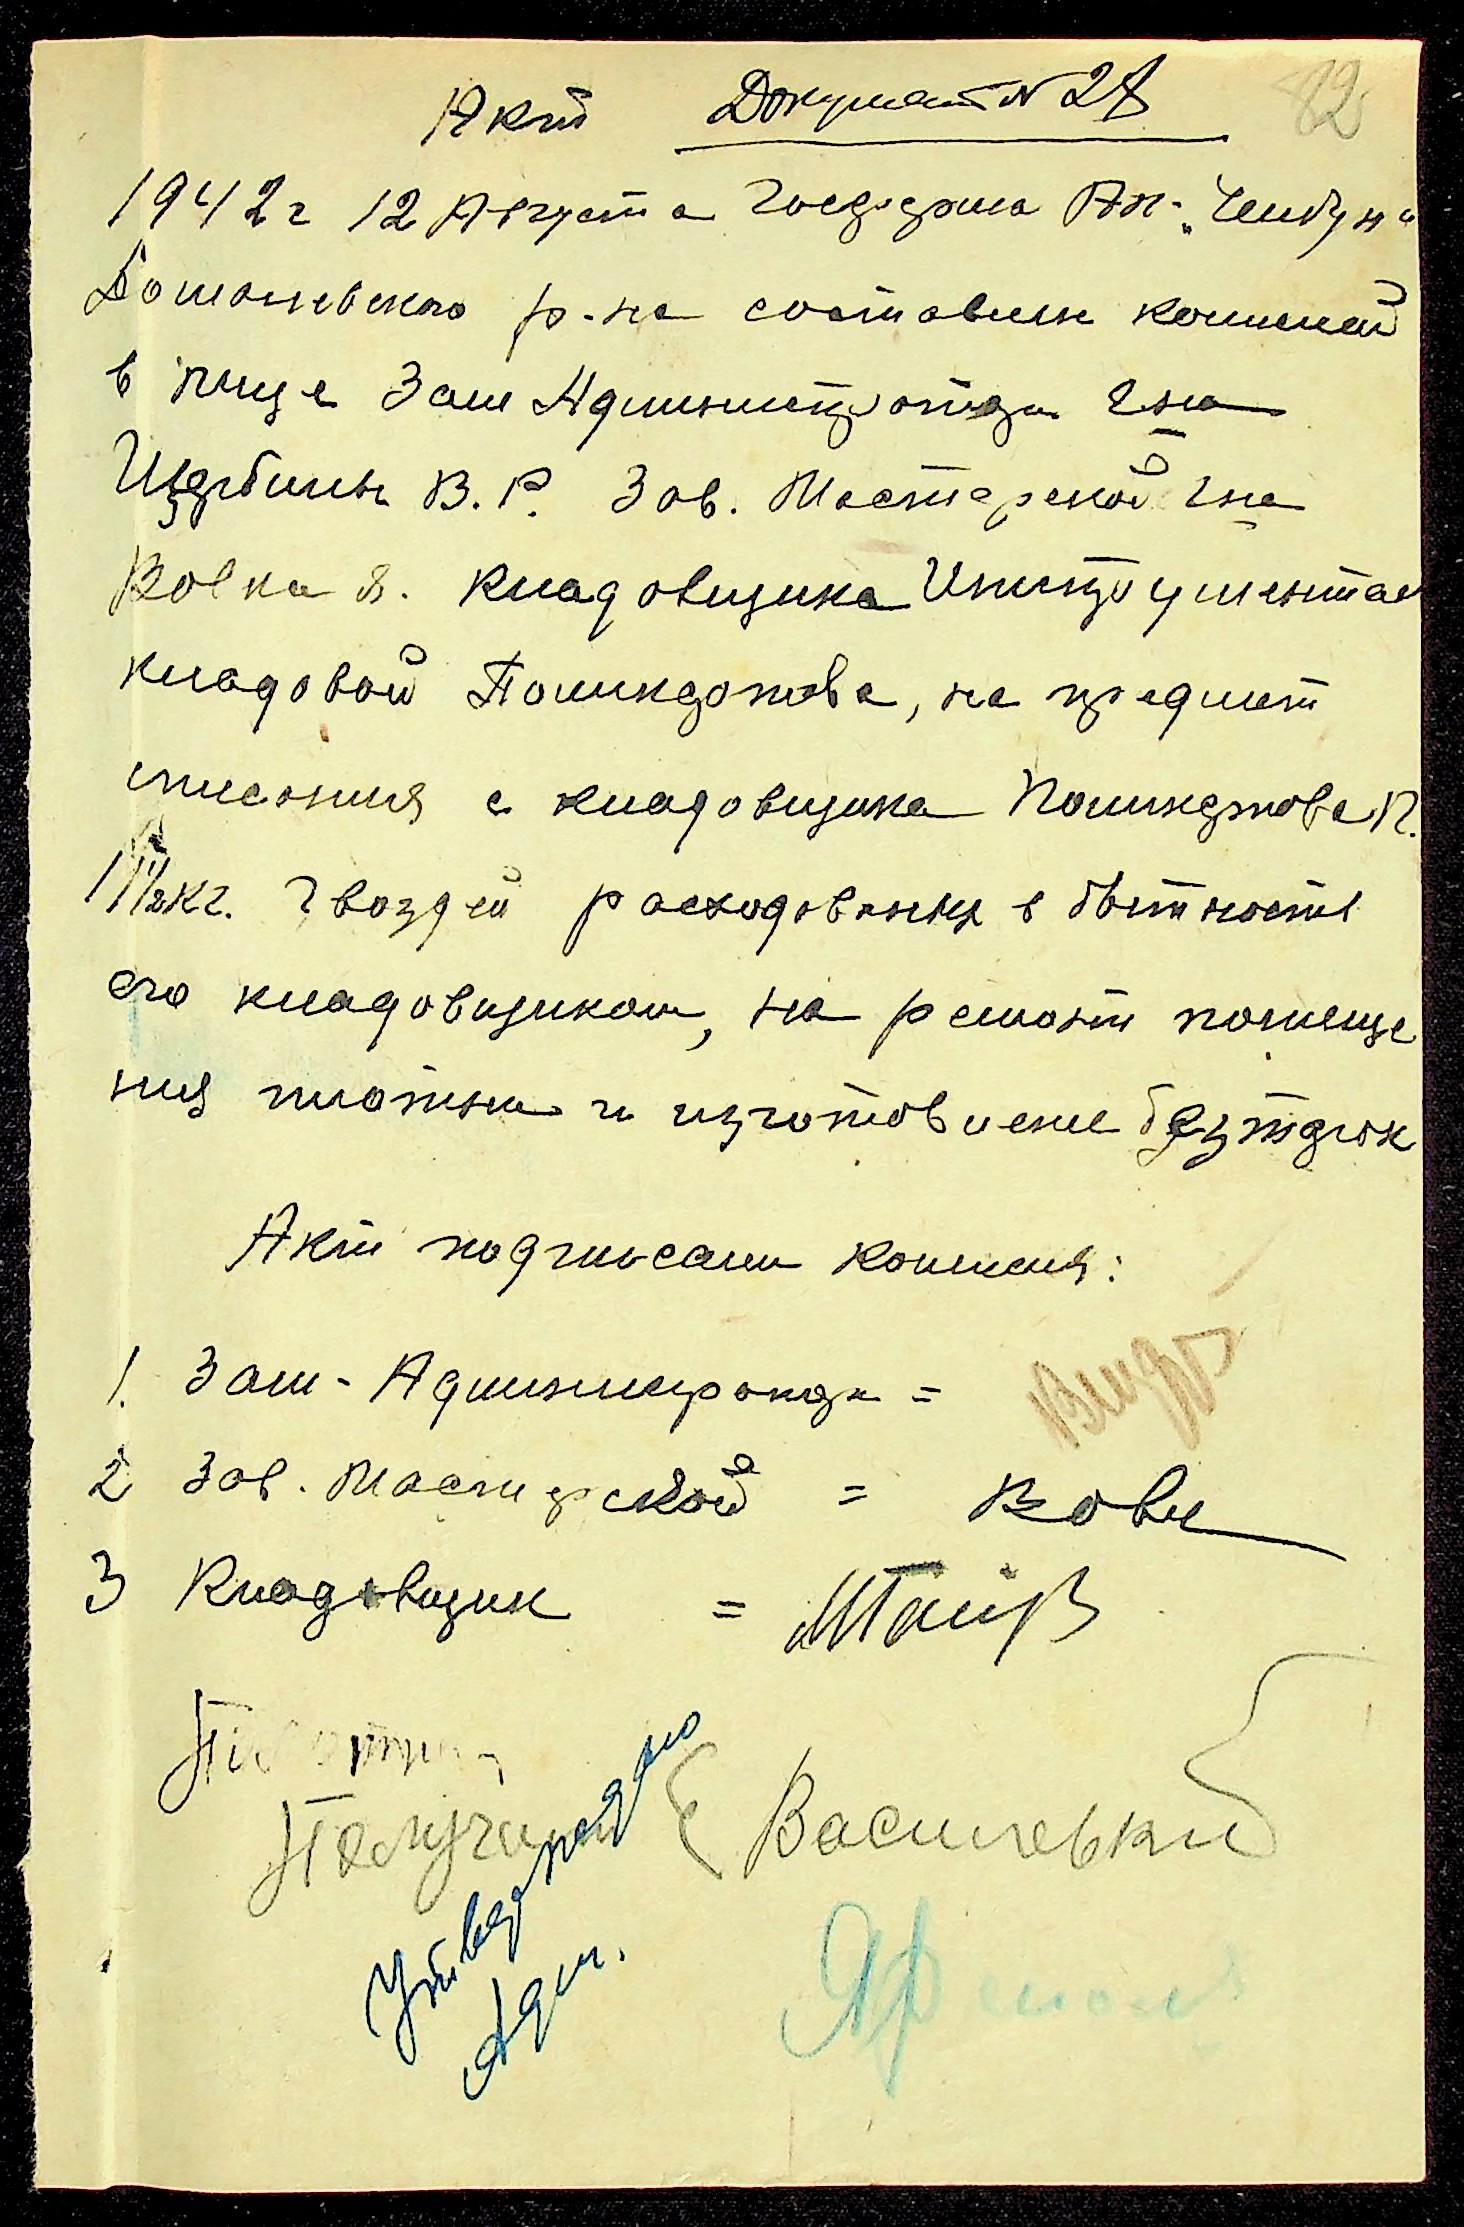 Акт Документ № 28 82
1942 г 12 Августа Госферма Ан-"Чембур"
Ботошевского р-на составлен комисией
в лице Зам Администратора г-на
Щербины В.Р. Зав. Мастерской г-на
Вовка Я. Кладовщика Инструментал
кладовой Поликарпова, на предмет
списания с кладовщика Поликарпова П.
11½ кг. гвоздей расходования в бытность
его кладовщиком, на ремонт помеще
ния плотны и изготовление
Акт подписали комисия:
1. Зам-Администратора =
2 Зав. Мастерской = Вовк
3 Кладовщик =
Получили { Василевский
Утверждаю
Адм.